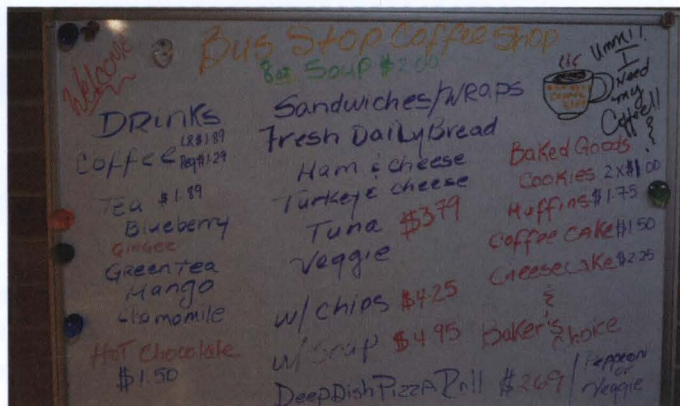 Welcome
Bus Stop Coffee Shop
8oz Soup $2.00
Ummm!!
I
Need
my
Coffee!!
DRinKs
Coffee LR $1.89
Reg $1.29
Tea $1.89
Blueberry
Ginger
Green Tea
Mango
Chamomile
Hot Chocolate
$1.50
Sandwiches/WRaps
Fresh DaiLy Bread
Ham & cheese
Turkey & cheese
Tuna $3.79
Veggie
w/ chips $4.25
w/ Soup $4.95
Deep Dish Pizza Roll $2.69 / Pepperoni
or
Veggie
Baked Goods
Cookies 2 x $1.00
Muffins $1.75
Coffee Cake $1.50
Cheesecake $2.25
&
Baker's
Choice